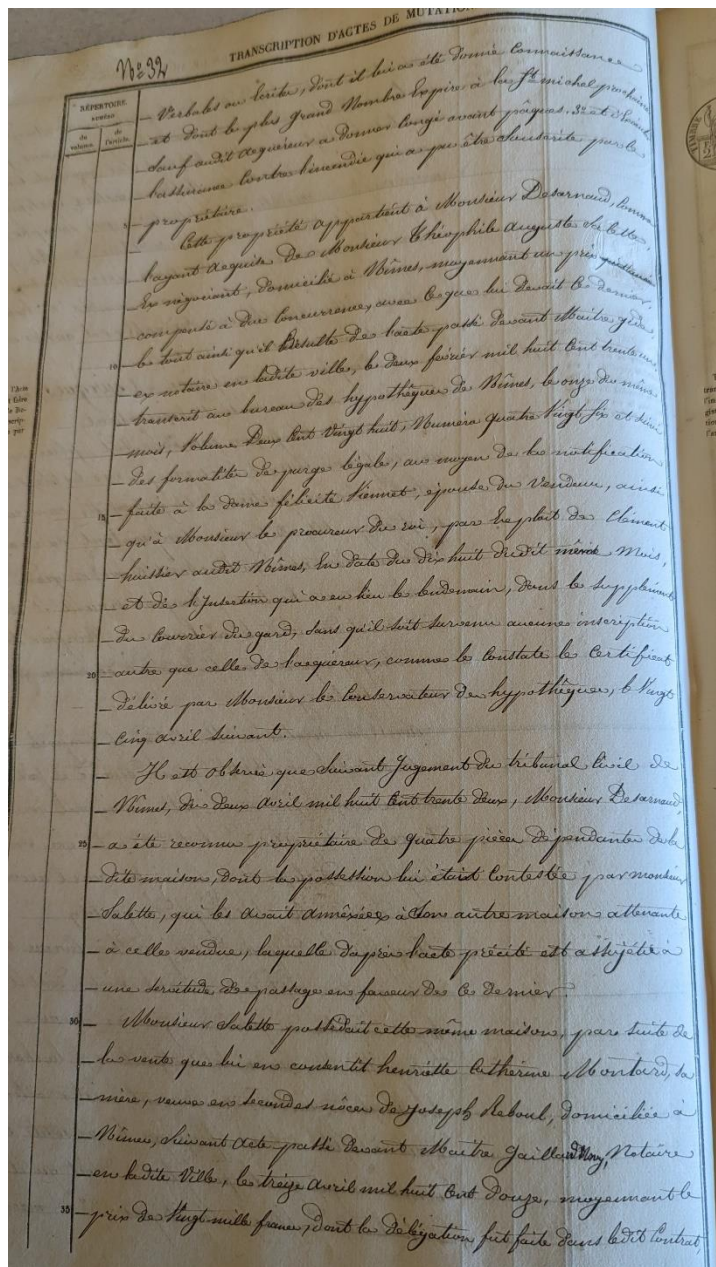 N° 32
TRANSCRIPTION D'ACTES DE MUTATION
RÉPERTOIRE
du volume.
de l'article.
Verbales ou écrites, dont il lui a été donné Connaissance
et dont le plus grand Nombre Expire à la St michel prochaine
Sauf audit acquéreur à donner Congé avant pâques. 3°
l'assurance Contre l'incendie qui a pu être Souscrite par le
5 propriétaire.
Cette propriété appartient à Monsieur Desarnaud, Comme
l'ayant acquise de Monsieur Théophile auguste Salette,
Ex négociant, domicilié à Nîmes, moyennant un prix
compensé à Due Concurrence, avec Ce que lui Devait Ce dernier,
10 le tout ainsi qu'il Résulte de l'acte passé devant Maitre
ex notaire en ladite ville, le deux février mil huit Cent trente un,
transcrit au bureau des hypothèques de Nîmes, le onze du même
mois, Volume Deux Cent Vingt huit, Numéro quatre Vingt Six et suivi
des formalités de purge légale, au moyen de la notification
15 faite à la dame félicité Viennet, épouse du Vendeur, ainsi
qu'à Monsieur le procureur du roi, par Exploit de Clément
huissier audit Nîmes, En date du dix huit dudit même Mois,
et de l'Insertion qui a eu lieu le lendemain, dans le Supplément
du Courrier du gard, Sans qu'il soit survenu aucune inscription
20 autre que celle de l'acquéreur, comme le Constate le Certificat
délivré par Monsieur le Conservateur des hypothèques, le Vingt
Cinq avril Suivant.
Il est Observé que Suivant Jugement du tribunal Civil de
Nîmes, du deux avril mil huit Cent trente deux, Monsieur Desarnaud,
25 a été reconnu propriétaire de quatre pièces dépendantes de la
dite maison, dont la possession lui était Contestée par monsieur
Salette, qui les avait annéxées à Son autre maison attenante
à celle vendue, laquelle d'après l'acte précité est assujétie à
une servitude de passage en faveur de Ce Dernier.
30 Monsieur Salette possédait cette même maison, par suite de
la vente que lui en consentit henriette Cathérine Montard, sa
mère, veuve en secondes nôces de Joseph Reboul, domiciliée à
Nîmes, Suivant Acte passé Devant Maitre Gaillard Notaire
en ladite Ville, le treize avril mil huit Cent Douze, moyennant le
35 prix de Vingt mille francs, Dont la délégation fut faite dans ledit Contrat,